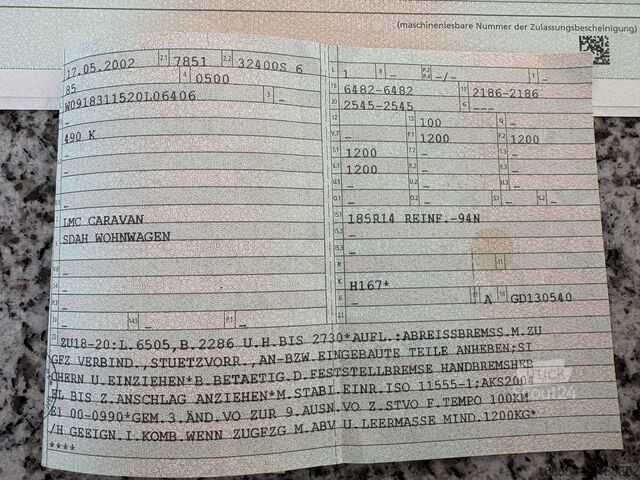 (maschinenlesbare Nummer der Zulassungsbescheinigung)
17.05.2002 2.1 7851 2.2 32400S 6
85 4 0500
W0918311520L06406 3 -
490 K
-
-
-
-
LMC CARAVAN
SDAH WOHNWAGEN
-
-
-
- -
L 1 9 - P.2 P.4 -/- T -
18 6482-6482 19 2186-2186
20 2545-2545 G ---
12 - 13 100 Q -
V.7 - F.1 1200 F.2 1200
7.1 1200 7.2 - 7.3 -
8.1 1200 8.2 - 8.3 -
U.1 - U.2 - U.3 -
O.1 - O.2 - S.1 - S.2 -
15.1 185R14 REINF.-94N
15.2 -
15.3 -
R - 11
K H167*
6 - 17 A 16 GD130540
21 -
22 ZU18-20:L.6505,B.2286 U.H.BIS 2730*AUFL.:ABREISSBREMSS.M.ZU
GFZ VERBIND.,STUETZVORR.,AN-BZW.EINGEBAUTE TEILE ANHEBEN;SI
CHERN U.EINZIEHEN*B.BETAETIG.D.FESTSTELLBREMSE HANDBREMSHE
BIS Z.ANSCHLAG ANZIEHEN*M.STABI.EINR.ISO 11555-1;AKS200
E1 00-0990*GEM.3.ÄND.VO ZUR 9.AUSN.VO Z.STVO F.TEMPO 100KM
/H GEEIGN.I.KOMB.WENN ZUGFZG M.ABV U.LEERMASSE MIND.1200KG*
****